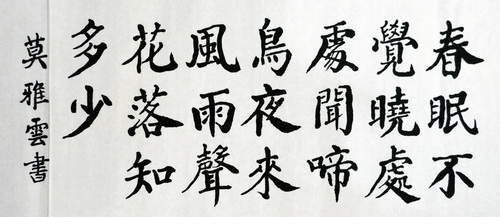 春眠不
覺曉處
處聞啼
鳥夜來
風雨聲
花落知
多少
莫雅雲書